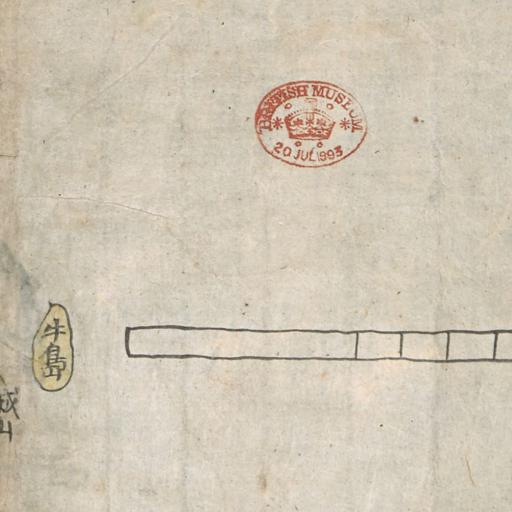 BRITISH MUSEUM
20 JUL 1993
牛島
城
山